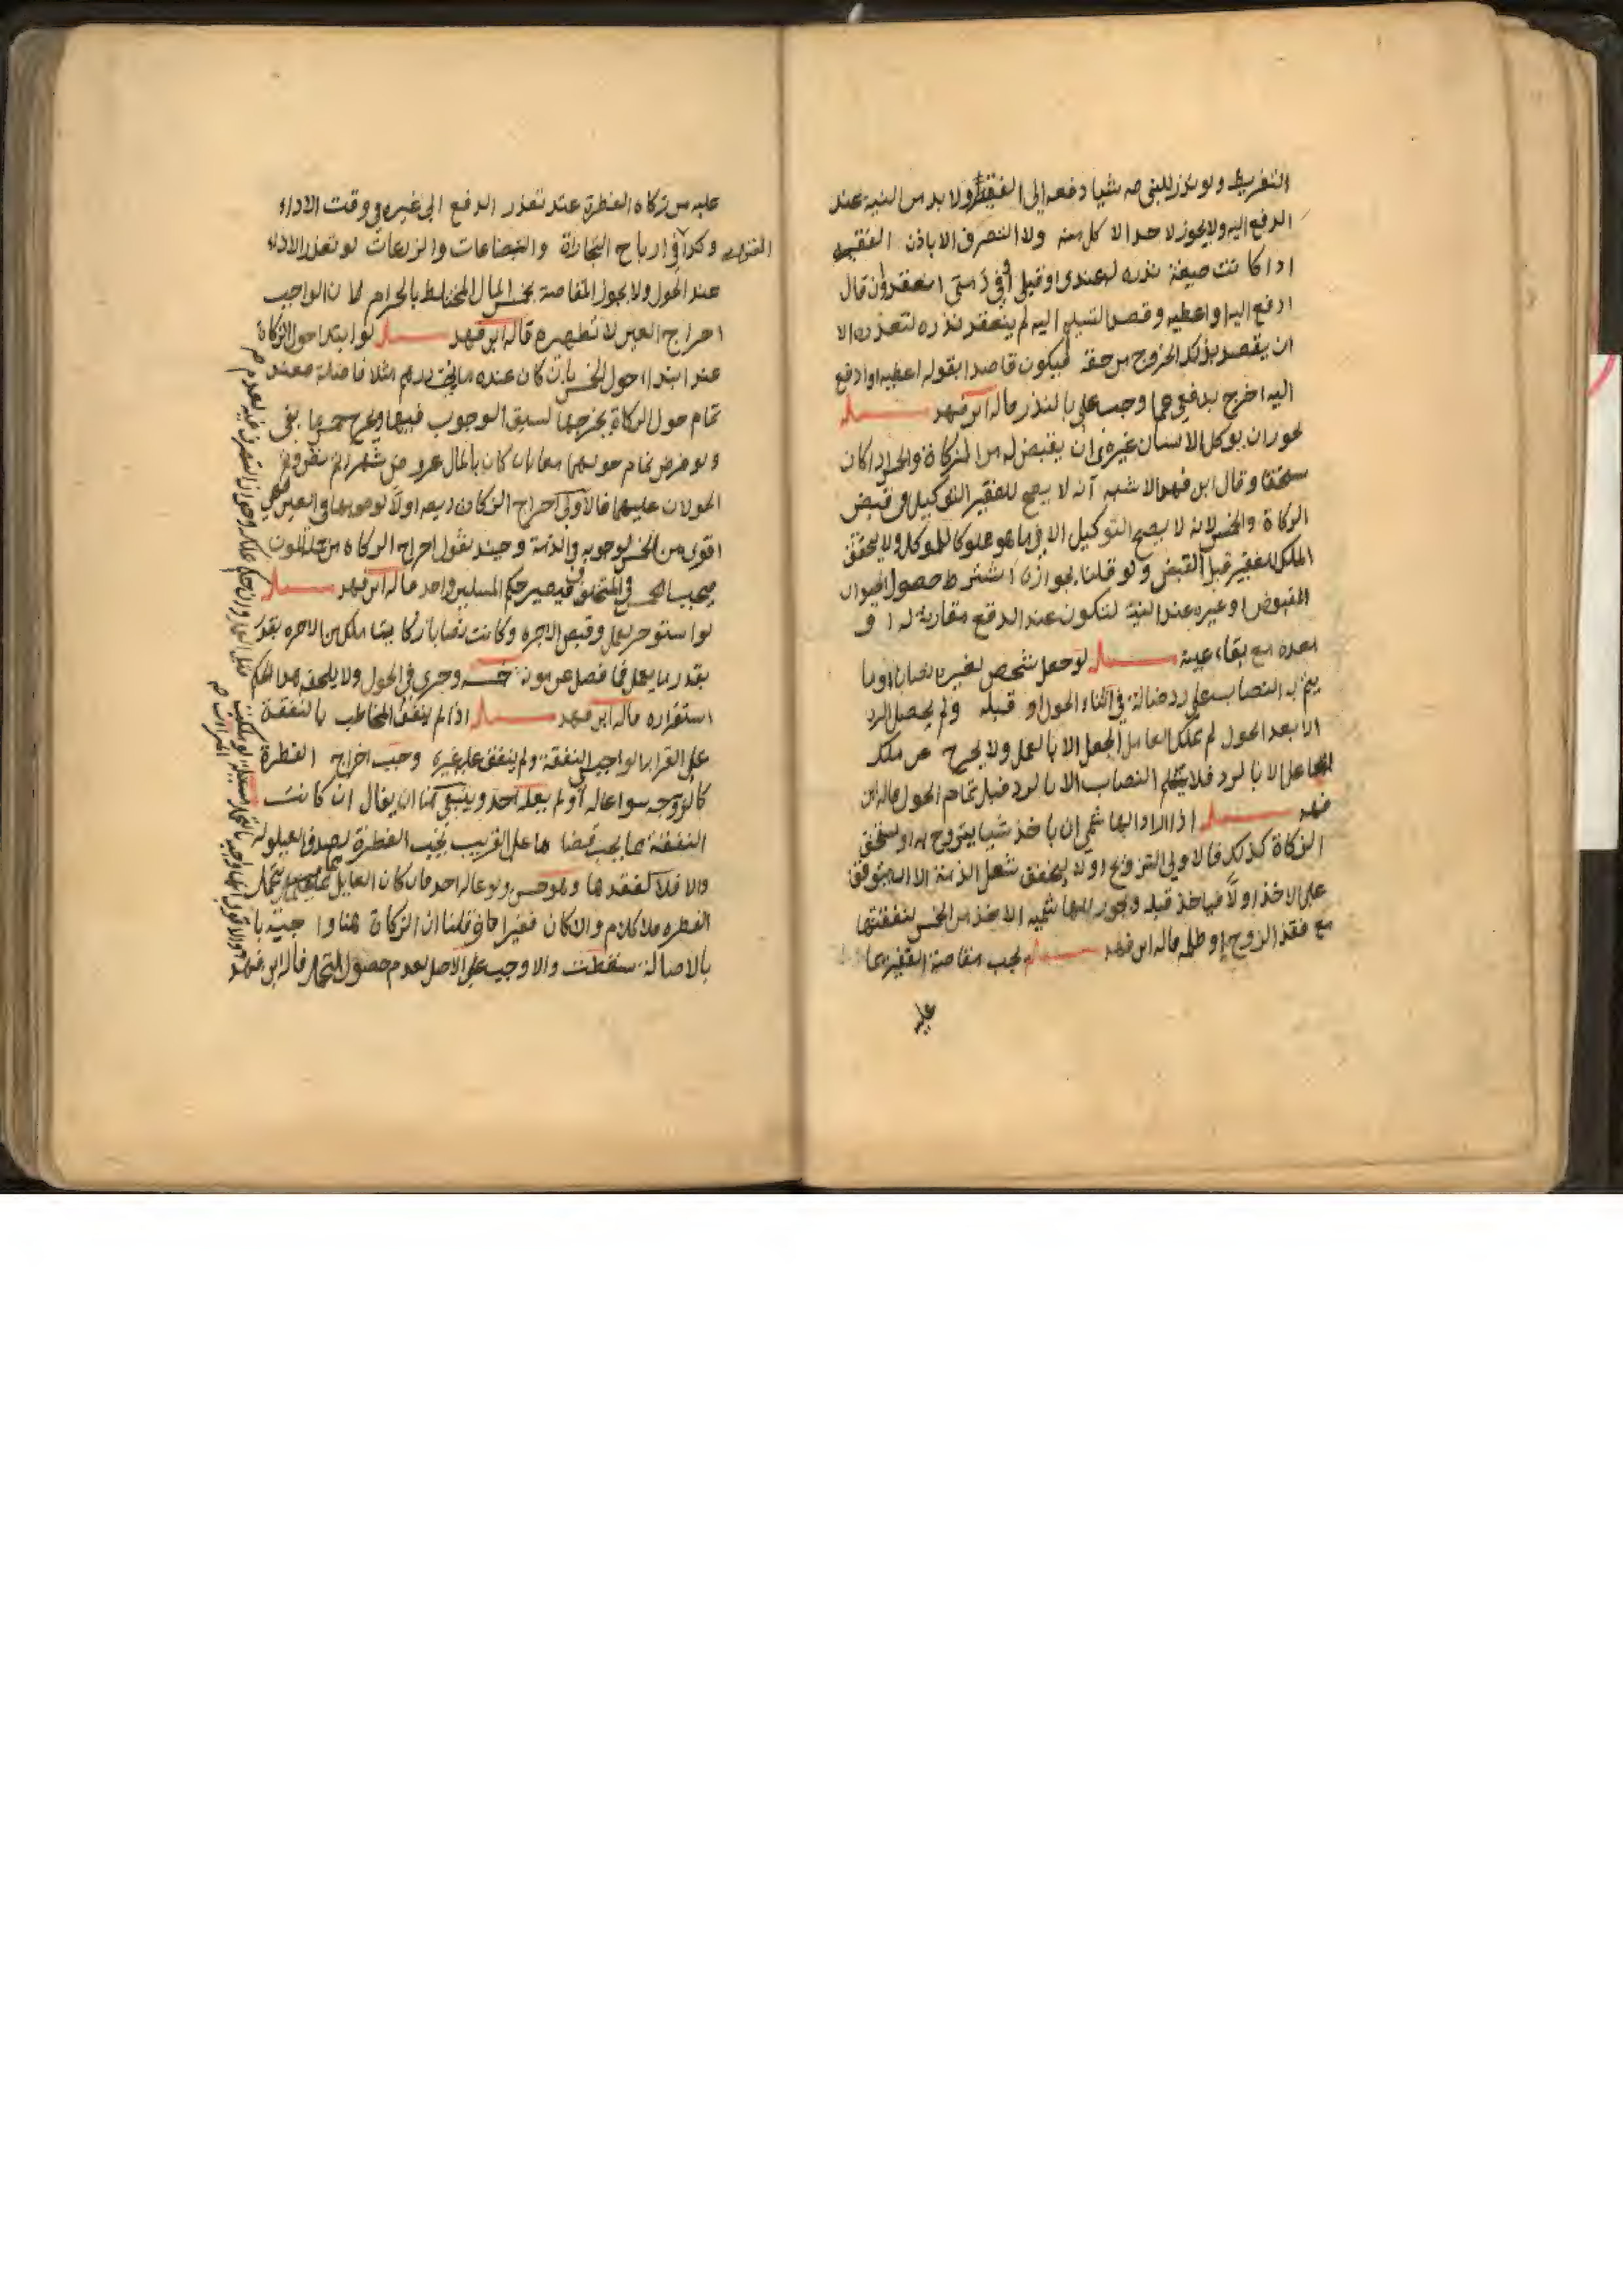 التفريط ولو نذر للنبي صه شيا دفعه الى الفقير ولا بد من النية عند
الدفع اليه ولا يجوز لاحد الاكل منه ولا التصرف الا باذن الفقيه
اذا كانت صيغة نذره له عندي او قبلي او في ذمتي انعقد وان قال
ادفع اليه او اعطيه وقصد التسليم اليه لم ينعقد نذره لتعذره الا
ان يقصد بذلك الخروج من حقه فيكون قاصدا بقوله اعطيه او ادفع
اليه اخرج بدفعي عما وجب علي بالنذر قاله ابن فهد مسئله
يجوز ان يوكل الانسان غيره في ان يقبض له من الزكاة والخمس اذا كان
مستحقا وقال ابن فهد الاشبه انه لا يصح للفقير التوكيل في قبض
الزكاة والخمس لانه لا يصح التوكيل الا فيما هو مملوكا للموكل ولا يتحقق
الملك للفقير قبل القبض ولو قلنا بجوازه اشترط حصول الحيوان
المقبوض او غيره عند النية لتكون عند الدفع مقارنة له او
بعده مع بقاء عينه مسئله لو جعل شخص لغيره نصابا او ما
يتم به النصاب على رد ضالة في اثناء الحول او قبله ولم يحصل الرد
الا بعد الحول لم يملك العامل الجعل الا بالعمل ولا يخرج عن ملك
الجاعل الا بالرد فلا ينثلم النصاب الا بالرد قبل تمام الحول قاله ابن
فهد مسئله اذا اراد الهاشمي ان ياخذ شيا يتزوج به او يستحق
الزكاة كذلك فالاولى التزويج اولا ليتحقق شغل الذمة الا ان يتوقف
على الاخذ اولا فياخذ قبله ويجوز للهاشميه الاخذ من الخمس لنفقتها
مع فقد الزوج او ظلمه قاله ابن فهد مسئله يجب مقاصة الفقير بما
عليه
عليه من زكاه الفطرة عند تعذر الدفع الى غيره في وقت الاداء
وكذا في ارباح التجارة والصناعات والزراعات لو تعذر الاداء
عند الحول ولا يجوز المقاصة بخمس المال المختلط بالحرام لان الواجب
اخراج العين لا تطهيره قاله ابن فهد مسئله لو ابتدا حول الزكاة
عند ابتداء حول الخمس بان كان عنده مايتي درهم مثلا فاضلة فعند
تمام حول الزكاة يخرجها لسبق الوجوب فيها ويخرج خمس ما بقي
ولو فرض تمام حولهما معا بان كان بالمال عروض شهرا ثم نض
الحولان عليهما فالاولى اخراج الزكاة اولا لوجوبها في العين فهي
اقوى من الخمس لوجوبه في الذمة وحينئذ نقول اخراج الزكاه من جملة المؤن
فيجب الخمس في المتخلف فيصير حكم المسلتين واحد قاله ابن فهد مسئله
لو استوجر لعمل وقبض الاجره وكانت نصابا زكاتيا ملك من الاجره بقدر
بقدر ما يعمل فما فضل عن مونة خمسه وجرى في الحول ولا يلحقه هذا الحكم
استقراره قاله ابن فهد مسئله اذا لم ينفق المخاطب بالنفقة
على القرابه الواجبي النفقة ولم ينفق عليه غيره وجب اخراج الفطرة
كالزوجه سوا عاله او لم يعله احد وينبغي هنا ان يقال ان كانت
النفقة مما يجب قضاها على القريب تجب الفطرة لصدق العيلوله
والا فلا لفقدها وهو حسن ولو عاله احد فان كان العايل
الفطره فلا كلام وان كان فقيرا فان قلنا ان الزكاة هنا واجبة با
بالاصالة سقطت والا وجب على الاصل لعدم حصول التحمل قاله ابن فهد